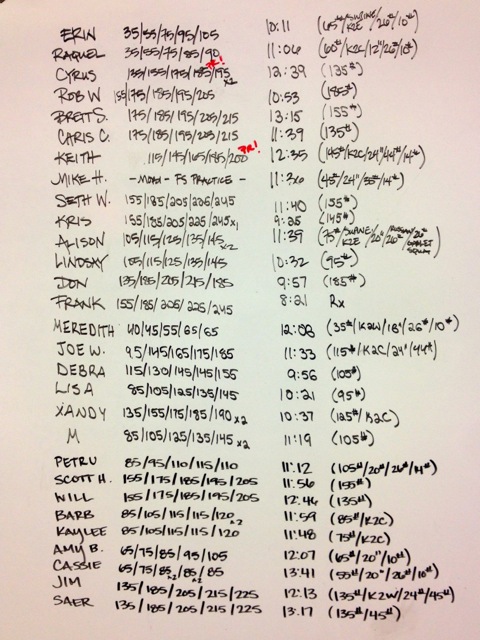 ERIN 35/55/75/95/105 10:11 (65#/SWINE/K2E/20"/10#)
RAQUEL 35/55/75/85/90 11:06 (60#/K2C/12"/26#/10#)
CYRUS 135/155/175/185/195 x2 PR! 12:39 (135#)
ROB W 155/175/185/195/205 10:53 (185#)
BRETT S. 175/185/195/205/215 13:15 (155#)
CHRIS C. 175/185/195/205/215 11:39 (135#)
KEITH 115/145/165/185/200 PR! 12:35 (145#/K2C/24"/44#/14#)
MIKE H. -MODI- FS PRACTICE - 11:36 (45#/24"/35#/14#)
SETH W. 155/185/205/225/245 11:40 (155#)
KRIS 155/185/205/225/245 x1 9:25 (145#)
ALISON 105/115/125/135/145 x2 11:39 (75#/SWINE/K2E/20"/26#
LINDSAY 105/115/125/135/145 10:32 (95#)
DON 135/185/205/215/185 9:57 (185#)
FRANK 155/185/205/225/245 8:21 Rx
MEREDITH 40/45/55/65/65 12:08 (35#/K2W/18"/26#/10#)
JOE W. 95/145/165/175/185 11:33 (115#/K2C/24"/44#)
DEBRA 115/130/145/145/155 9:56 (105#)
LISA 85/105/125/135/145 10:21 (95#)
XANDY 135/155/175/185/190 x2 10:37 (125#/K2C)
M 85/105/125/135/145 x2 11:19 (105#)
PETRU 85/95/110/115/110 11:12 (105#/20"/26#/14#)
SCOTT H. 155/175/185/195/205 11:56 (155#)
WILL 155/175/185/195/205 12:46 (135#)
BARB 85/105/115/115/120 x2 11:59 (85#/K2C)
KAYLEE 85/105/115/115/120 11:48 (75#/K2C)
AMY B. 65/75/85/95/105 12:07 (65#/20"/10#)
CASSIE 65/75/85 x2/85 x2/85 13:41 (55#/20"/26#/10#)
JIM 135/185/205/215/225 12:13 (135#/K2W/24"/45#)
SAER 135/185/205/215/225 13:17 (135#/45#)